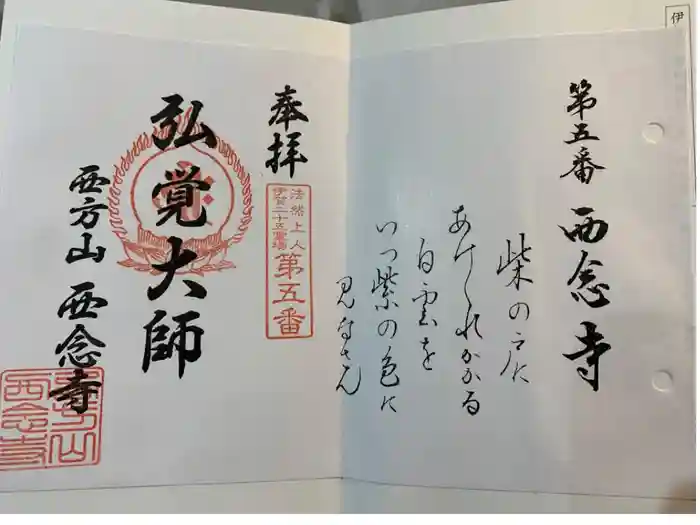 伊
第五番 西念寺
柴の戸に
あけくれかかる
白雲を
いつ紫の色に
見なさん
奉拝
法然上人
伊賀二十五霊場
第五番
弘覚大師
西方山 西念寺
西方山
西念寺